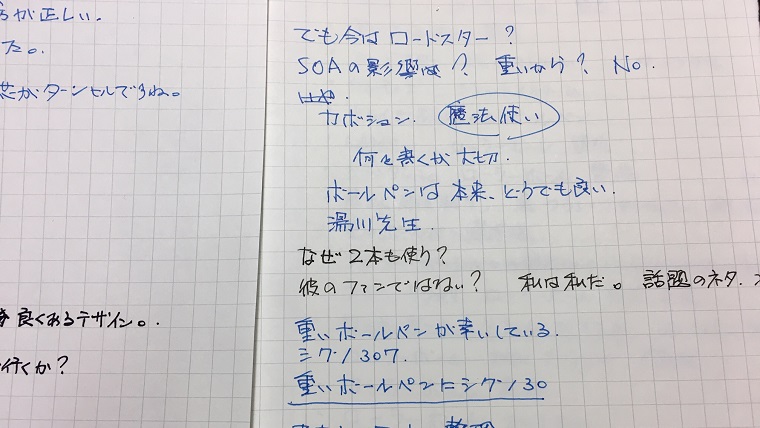 方が正しい。
た。
芯がターンセルですね。
良くあるデザイン。
行くか？
でも今は ロードスター？
SOAの影響は？ 重いから？ No.
カボション. 魔法使い
何を書くか大切.
ボールペンは本来、どうでも良い.
湯川先生.
なぜ2本も使り？
彼のファンではない？ 私は私だ。 話題のネタ.
重いボールペンが幸いしている.
シグノ307.
重いボールペンにシグノ30